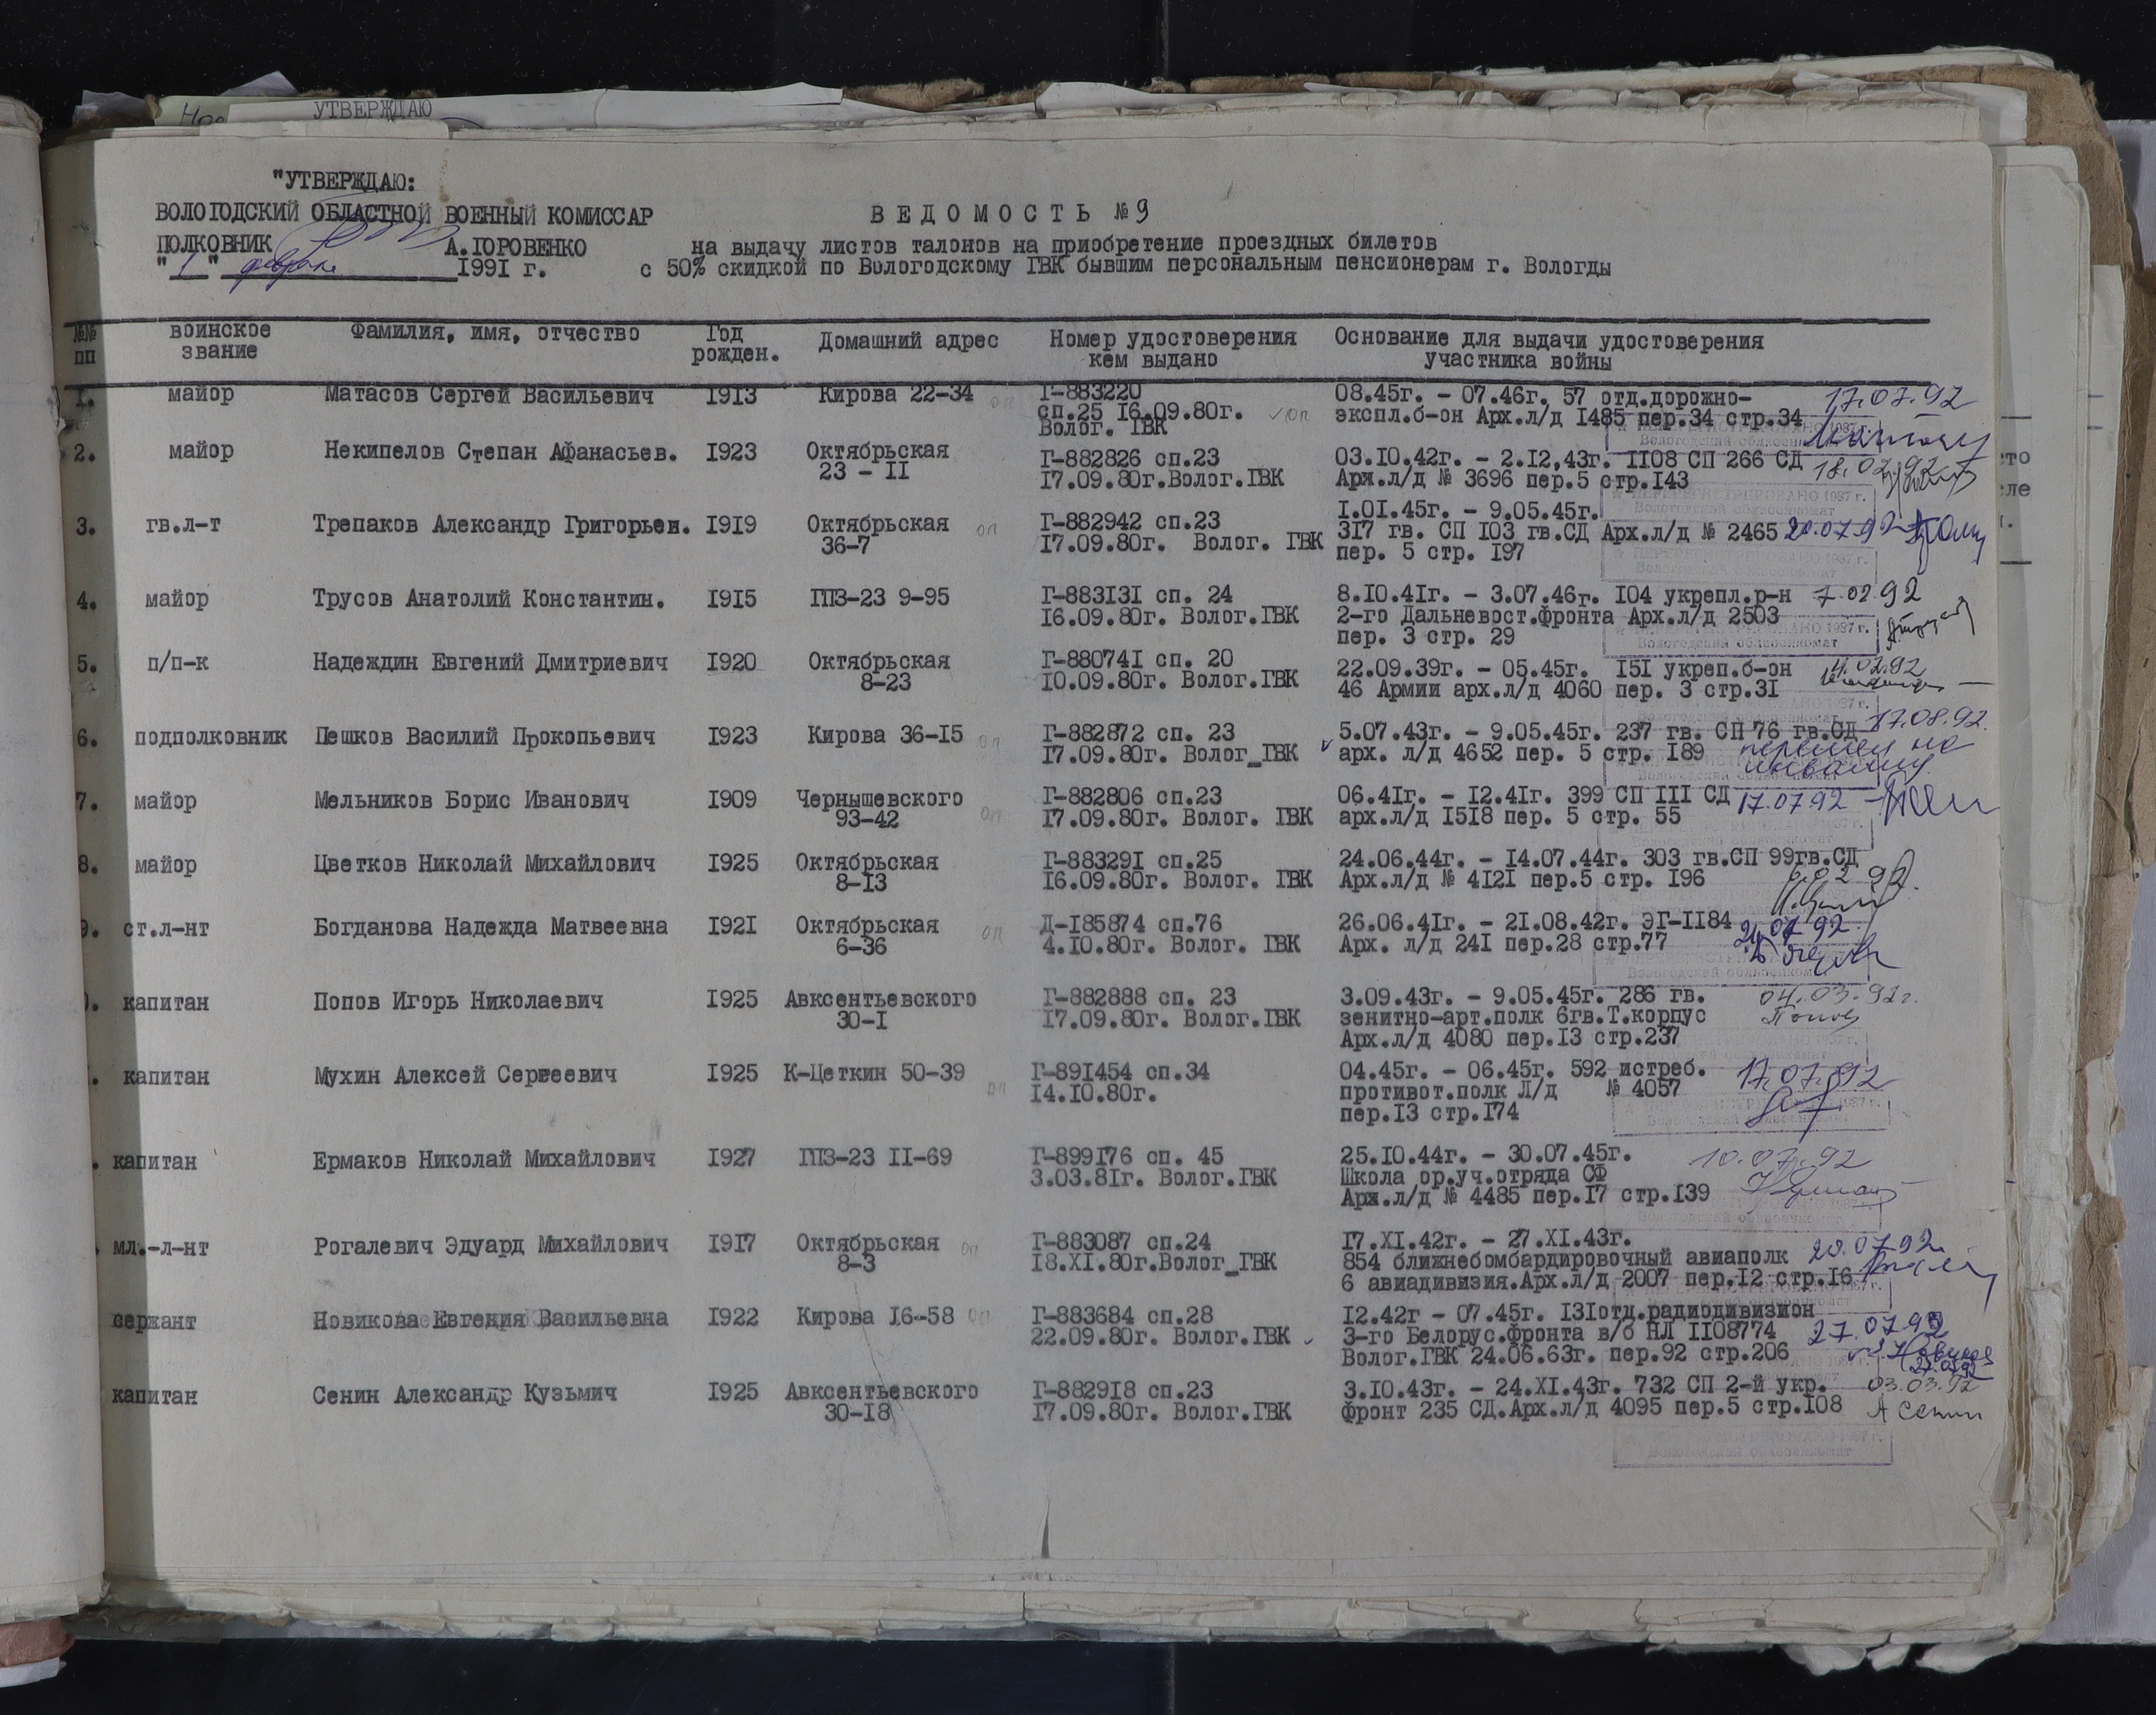 УТВЕРЖДАЮ
"УТВЕРЖДАЮ:
ВОЛОГОДСКИЙ ОБЛАСТНОЙ ВОЕННЫЙ КОМИССАР
ПОЛКОВНИК А.ГОРОВЕНКО
"1" февраля 1991 г.
ВЕДОМОСТЬ №9
на выдачу листов талонов на приобретение проездных билетов
с 50% скидкой по Вологодскому ГВК бывшим персональным пенсионерам г. Вологды
№№ пп воинское звание Фамилия, имя, отчество Год рожден. Домашний адрес Номер удостоверения кем выдано Основание для выдачи удостоверения участника войны
1. майор Матасов Сергей Васильевич 1913 Кирова 22-34 оп Г-883220 08.45г. - 07.46г. 57 отд.дорожно- 17.07.92
сп.25 16.09.80г. оп экспл.б-он Арх.л/д 1485 пер.34 стр.34
Волог. ГВК
2. майор Некипелов Степан Афанасьев. 1923 Октябрьская Г-882826 сп.23 03.10.42г. - 2.12,43г. 1108 СП 266 СД 18.02.92
23 - 11 17.09.80г.Волог.ГВК Арх.л/д № 3696 пер.5 стр.143
3. гв.л-т Трепаков Александр Григорьев. 1919 Октябрьская оп Г-882942 сп.23 1.01.45г. - 9.05.45г.
36-7 17.09.80г. Волог. ГВК 317 гв. СП 103 гв.СД Арх.л/д № 2465 20.07.92
пер. 5 стр. 197
4. майор Трусов Анатолий Константин. 1915 ГПЗ-23 9-95 Г-883131 сп. 24 8.10.41г. - 3.07.46г. 104 укрепл.р-н 7.02.92
16.09.80г. Волог.ГВК 2-го Дальневост.фронта Арх.л/д 2503
пер. 3 стр. 29
5. п/п-к Надеждин Евгений Дмитриевич 1920 Октябрьская Г-880741 сп. 20 22.09.39г. - 05.45г. 151 укреп.б-он
8-23 10.09.80г. Волог.ГВК 46 Армии арх.л/д 4060 пер. 3 стр.31
6. подполковник Пешков Василий Прокопьевич 1923 Кирова 36-15 оп Г-882872 сп. 23 5.07.43г. - 9.05.45г. 237 гв. СП 76 гв.СД 17.08.92.
17.09.80г. Волог_ГВК арх. л/д 4652 пер. 5 стр. 189
7. майор Мельников Борис Иванович 1909 Чернышевского оп Г-882806 сп.23 06.41г. - 12.41г. 399 СП 111 СД 17.07.92
93-42 17.09.80г. Волог. ГВК арх.л/д 1518 пер. 5 стр. 55
8. майор Цветков Николай Михайлович 1925 Октябрьская Г-883291 сп.25 24.06.44г. - 14.07.44г. 303 гв.СП 99гв.СД
8-13 16.09.80г. Волог. ГВК Арх.л/д № 4121 пер.5 стр. 196 6.02.92.
9. ст.л-нт Богданова Надежда Матвеевна 1921 Октябрьская оп Д-185874 сп.76 26.06.41г. - 21.08.42г. ЭГ-1184
6-36 4.10.80г. Волог. ГВК Арх. л/д 241 пер.28 стр.77
капитан Попов Игорь Николаевич 1925 Авксентьевского Г-882888 сп. 23 3.09.43г. - 9.05.45г. 286 гв. 04.03.92г.
30-1 17.09.80г. Волог.ГВК зенитно-арт.полк 6гв.Т.корпус Попов
Арх.л/д 4080 пер.13 стр.237
капитан Мухин Алексей Сергеевич 1925 К-Цеткин 50-39 оп Г-891454 сп.34 04.45г. - 06.45г. 592 истреб. 17.07.92
14.10.80г. противот.полк Л/д № 4057
пер.13 стр.174
капитан Ермаков Николай Михайлович 1927 ГПЗ-23 11-69 Г-899176 сп. 45 25.10.44г. - 30.07.45г. 10.07.92
3.03.81г. Волог.ГВК Школа ор.уч.отряда СФ
Арх.л/д № 4485 пер.17 стр.139
мл.-л-нт Рогалевич Эдуард Михайлович 1917 Октябрьская оп Г-883087 сп.24 17.XI.42г. - 27.XI.43г.
8-3 18.XI.80г.Волог_ГВК 854 ближнебомбардировочный авиаполк 20.07.92
6 авиадивизия.Арх.л/д 2007 пер.12 стр.16
сержант Новикова Евгения Васильевна 1922 Кирова 16-58 оп Г-883684 сп.28 12.42г - 07.45г. 131отд.радиодивизион
22.09.80г. Волог.ГВК 3-го Белорус.фронта в/б НЛ 1108774 27.07.92
Волог.ГВК 24.06.63г. пер.92 стр.206
капитан Сенин Александр Кузьмич 1925 Авксентьевского Г-882918 сп.23 3.10.43г. - 24.XI.43г. 732 СП 2-й укр. 03.03.92
30-18 17.09.80г. Волог.ГВК фронт 235 СД.Арх.л/д 4095 пер.5 стр.108 А Сенин